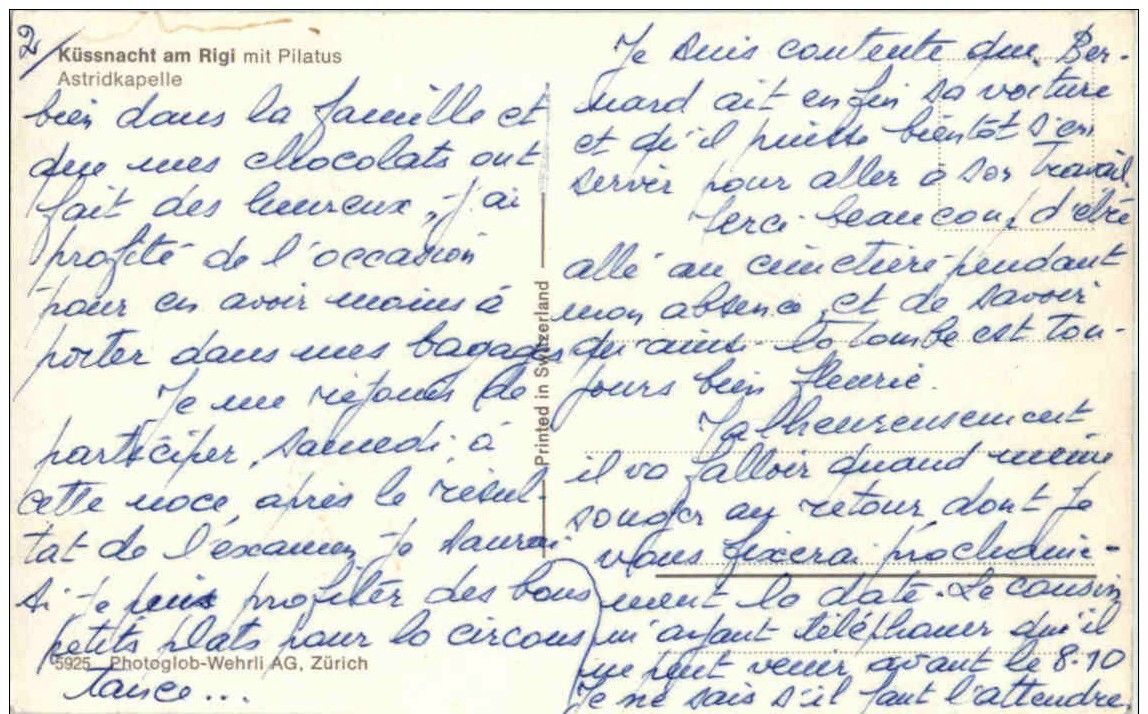 2/
Küssnacht am Rigi mit Pilatus
Astridkapelle
bien dans la famille et
que mes chocolats ont
fait des heureux, j'ai
profité de l'occasion
pour en avoir moins à
porter dans mes bagages
Je me réjouis de
participer, samedi, à
cette noce, après le résul-
tat de l'examen je saurai
si je puis profiter des bons
petits plats pour la circons
tance...
5925 Photoglob-Wehrli AG, Zürich
Printed in Switzerland
Je suis contente que Ber-
nard ait enfin sa voiture
et qu'il puisse bientôt s'en
servir pour aller à son travail.
Merci beaucoup d'être
allé au cimetière pendant
mon absence, et de savoir
qu'ainsi la tombe est tou-
jours bien fleurie.
Malheureusement
il va falloir quand même
songer au retour dont je
vous fixerai prochaine-
ment la date. Le cousin
m'ayant téléphoner qu'il
ne peut venir avant le 8-10
Je ne sais s'il faut l'attendre,